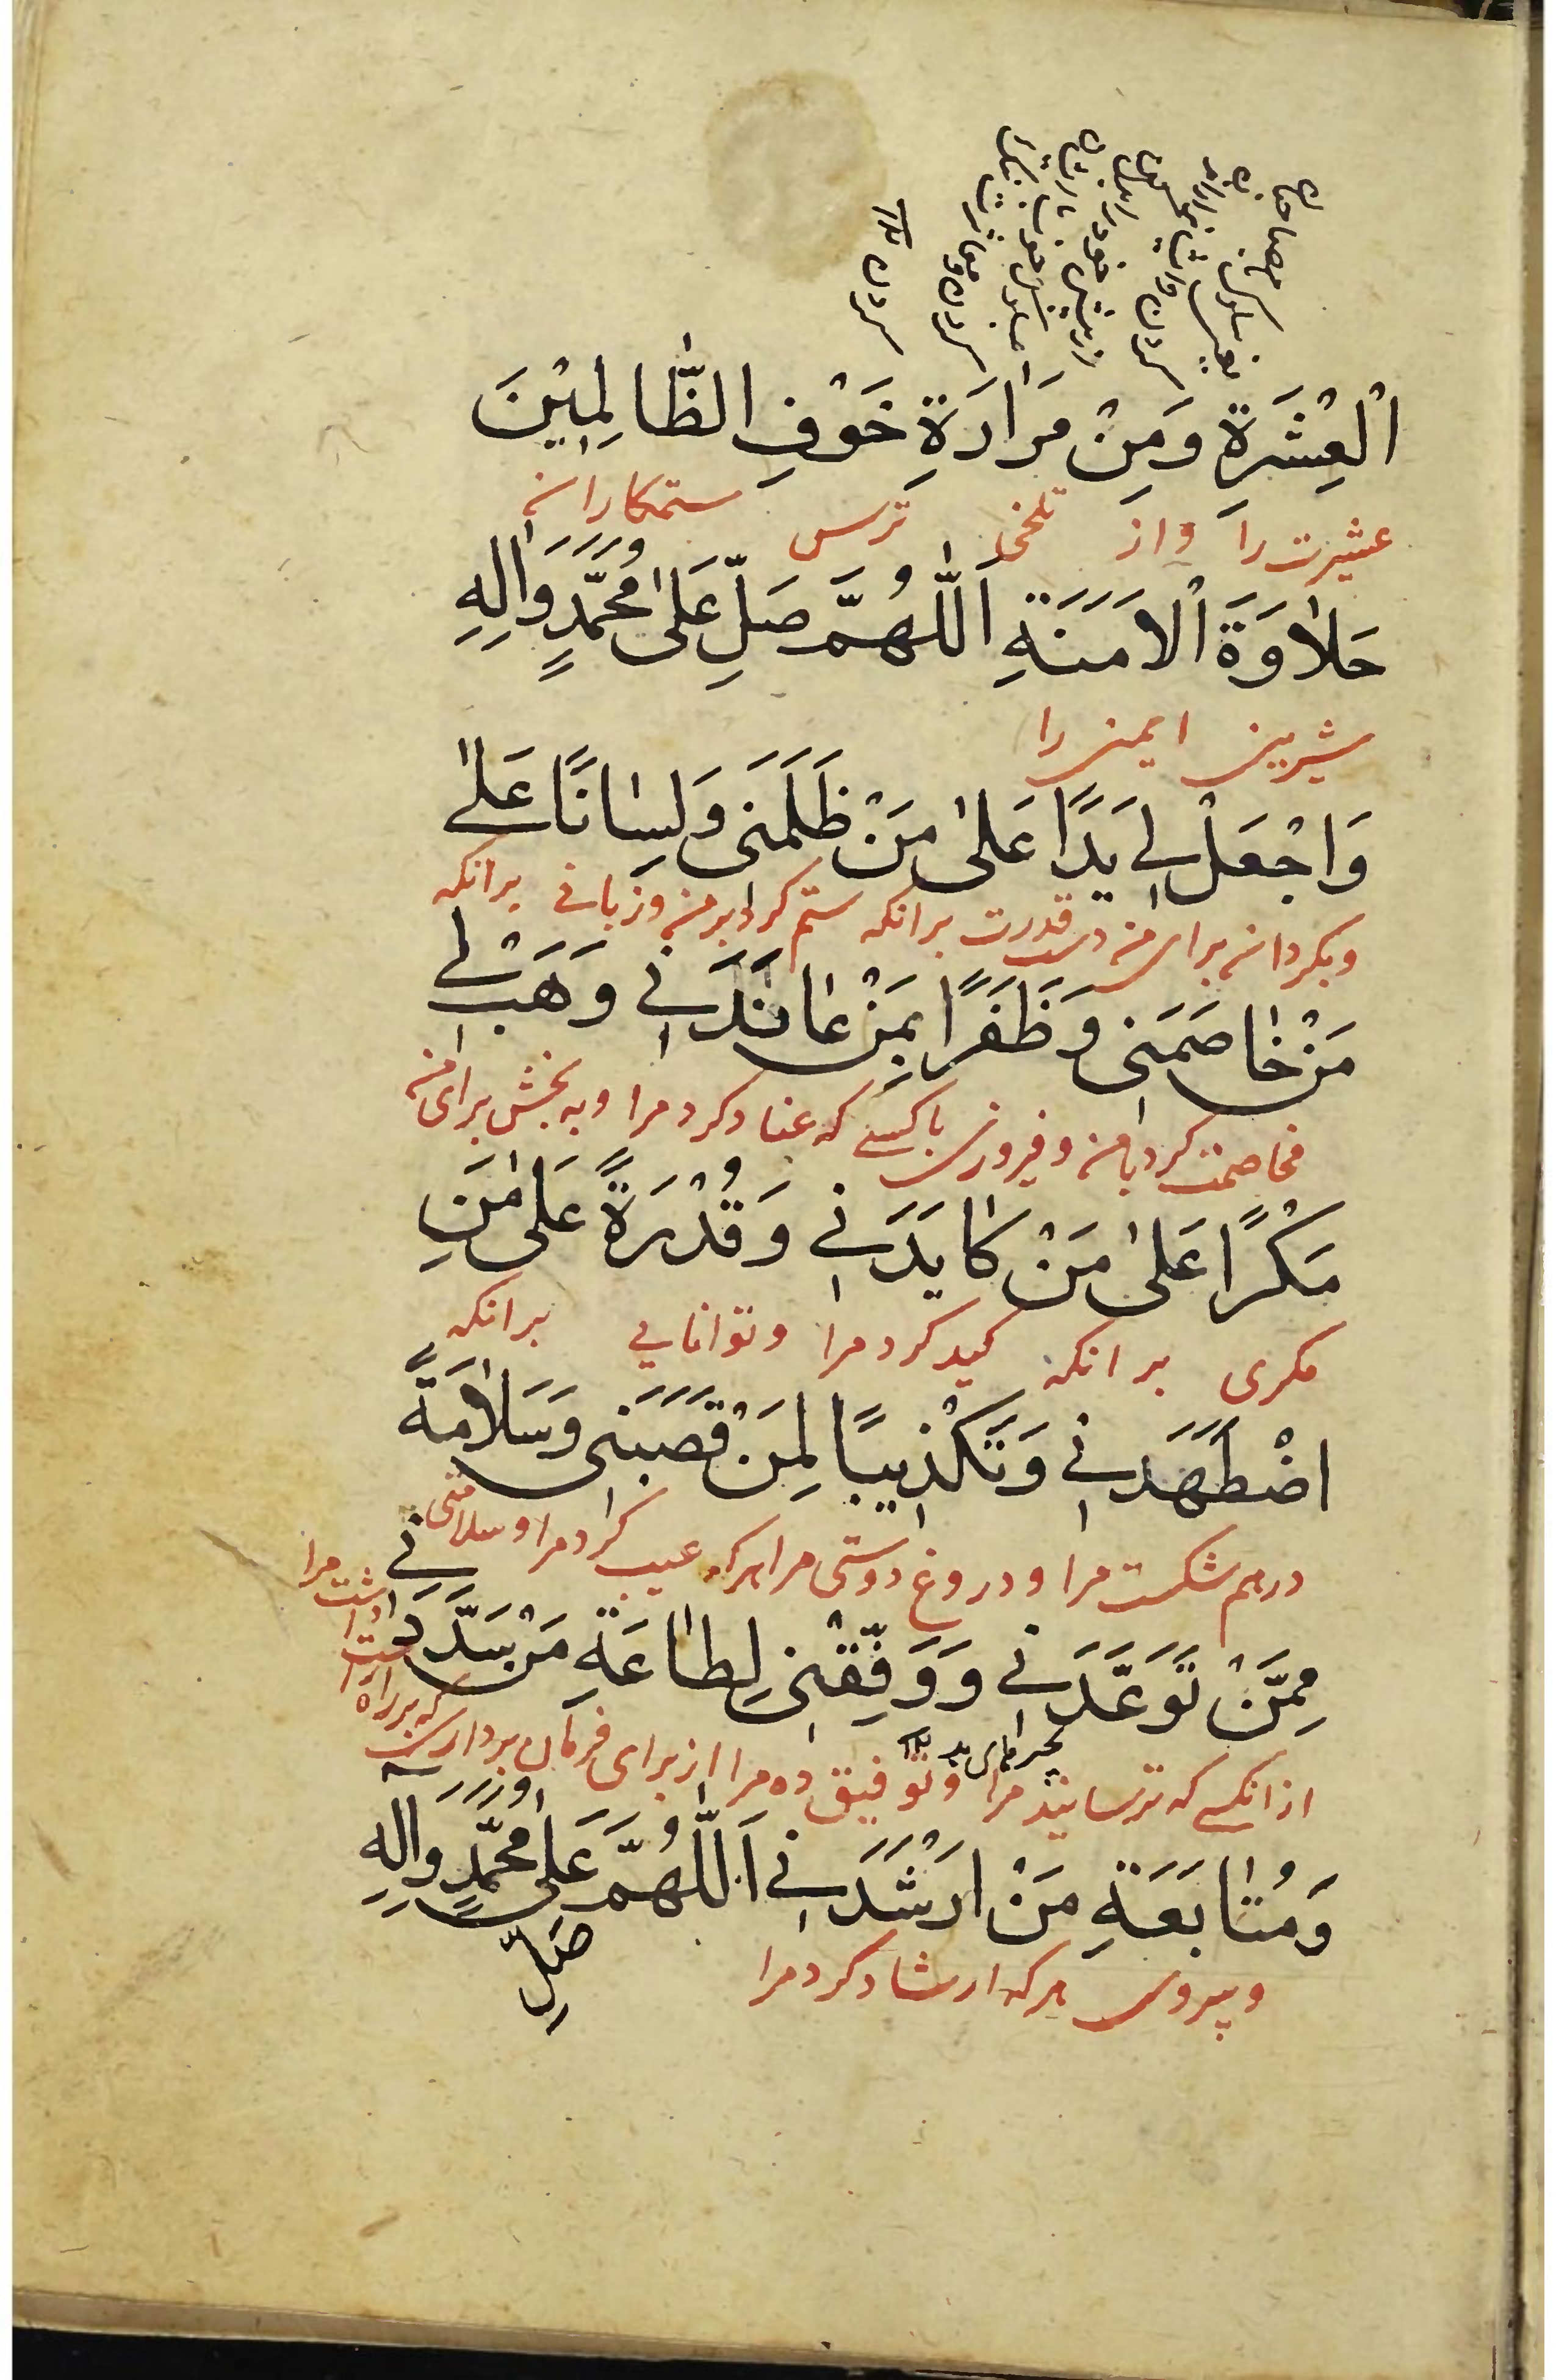 اَلْعِشْرَةِ وَمِنْ مَرَارَةِ خَوْفِ الظّٰالِمِيْنَ
عشیرت را واز تلخی ترس ستمکاران
حَلٰاوَةَ الْاَمَنَةِ اَللّٰهُمَّ صَلِّ عَلىٰ مُحَمَّدٍ وَاٰلِهِ
شیرینی ایمنی را
وَاجْعَلْ لِي يَدًا عَلىٰ مَنْ ظَلَمَنِى وَلِسٰانًا عَلىٰ
وبکردان برای من دست قدرت برانکه ستم کرد برمن وزبانی برانکه
مَنْ خٰاصَمَنِى وَظَفَرًا بِمَنْ عٰانَدَنِي وَهَبْ لِي
مخاصمت کرد بامن وفیروزی باکسی که عناد کرد مرا وبه بخش برای من
مَكْرًا عَلىٰ مَنْ كٰايَدَنِي وَقُدْرَةً عَلىٰ مَنِ
مکری برانکه کید کرد مرا وتوانایی برانکه
اضْطَهَدَنِي وَتَكْذِيبًا لِمَنْ قَصَبَنِى وَسَلٰامَةً
درهم شکست مرا ودروغ دوستی مرا هرکه عیب کرد مرا وسلامتی
مِمَّنْ تَوَعَّدَنِي وَوَفِّقْنِى لِطٰاعَةِ مَنْ سَدَّدَنِي
ازانکسی که ترسانید مرا وتوفیق ده مرا از برای فرمان برداری که برراه راست داشت مرا
وَمُتٰابَعَةِ مَنْ اَرْشَدَنِي اَللّٰهُمَّ صَلِّ عَلىٰ مُحَمَّدٍ وَاٰلِهِ
وپیروی هرکه ارشاد کرد مرا